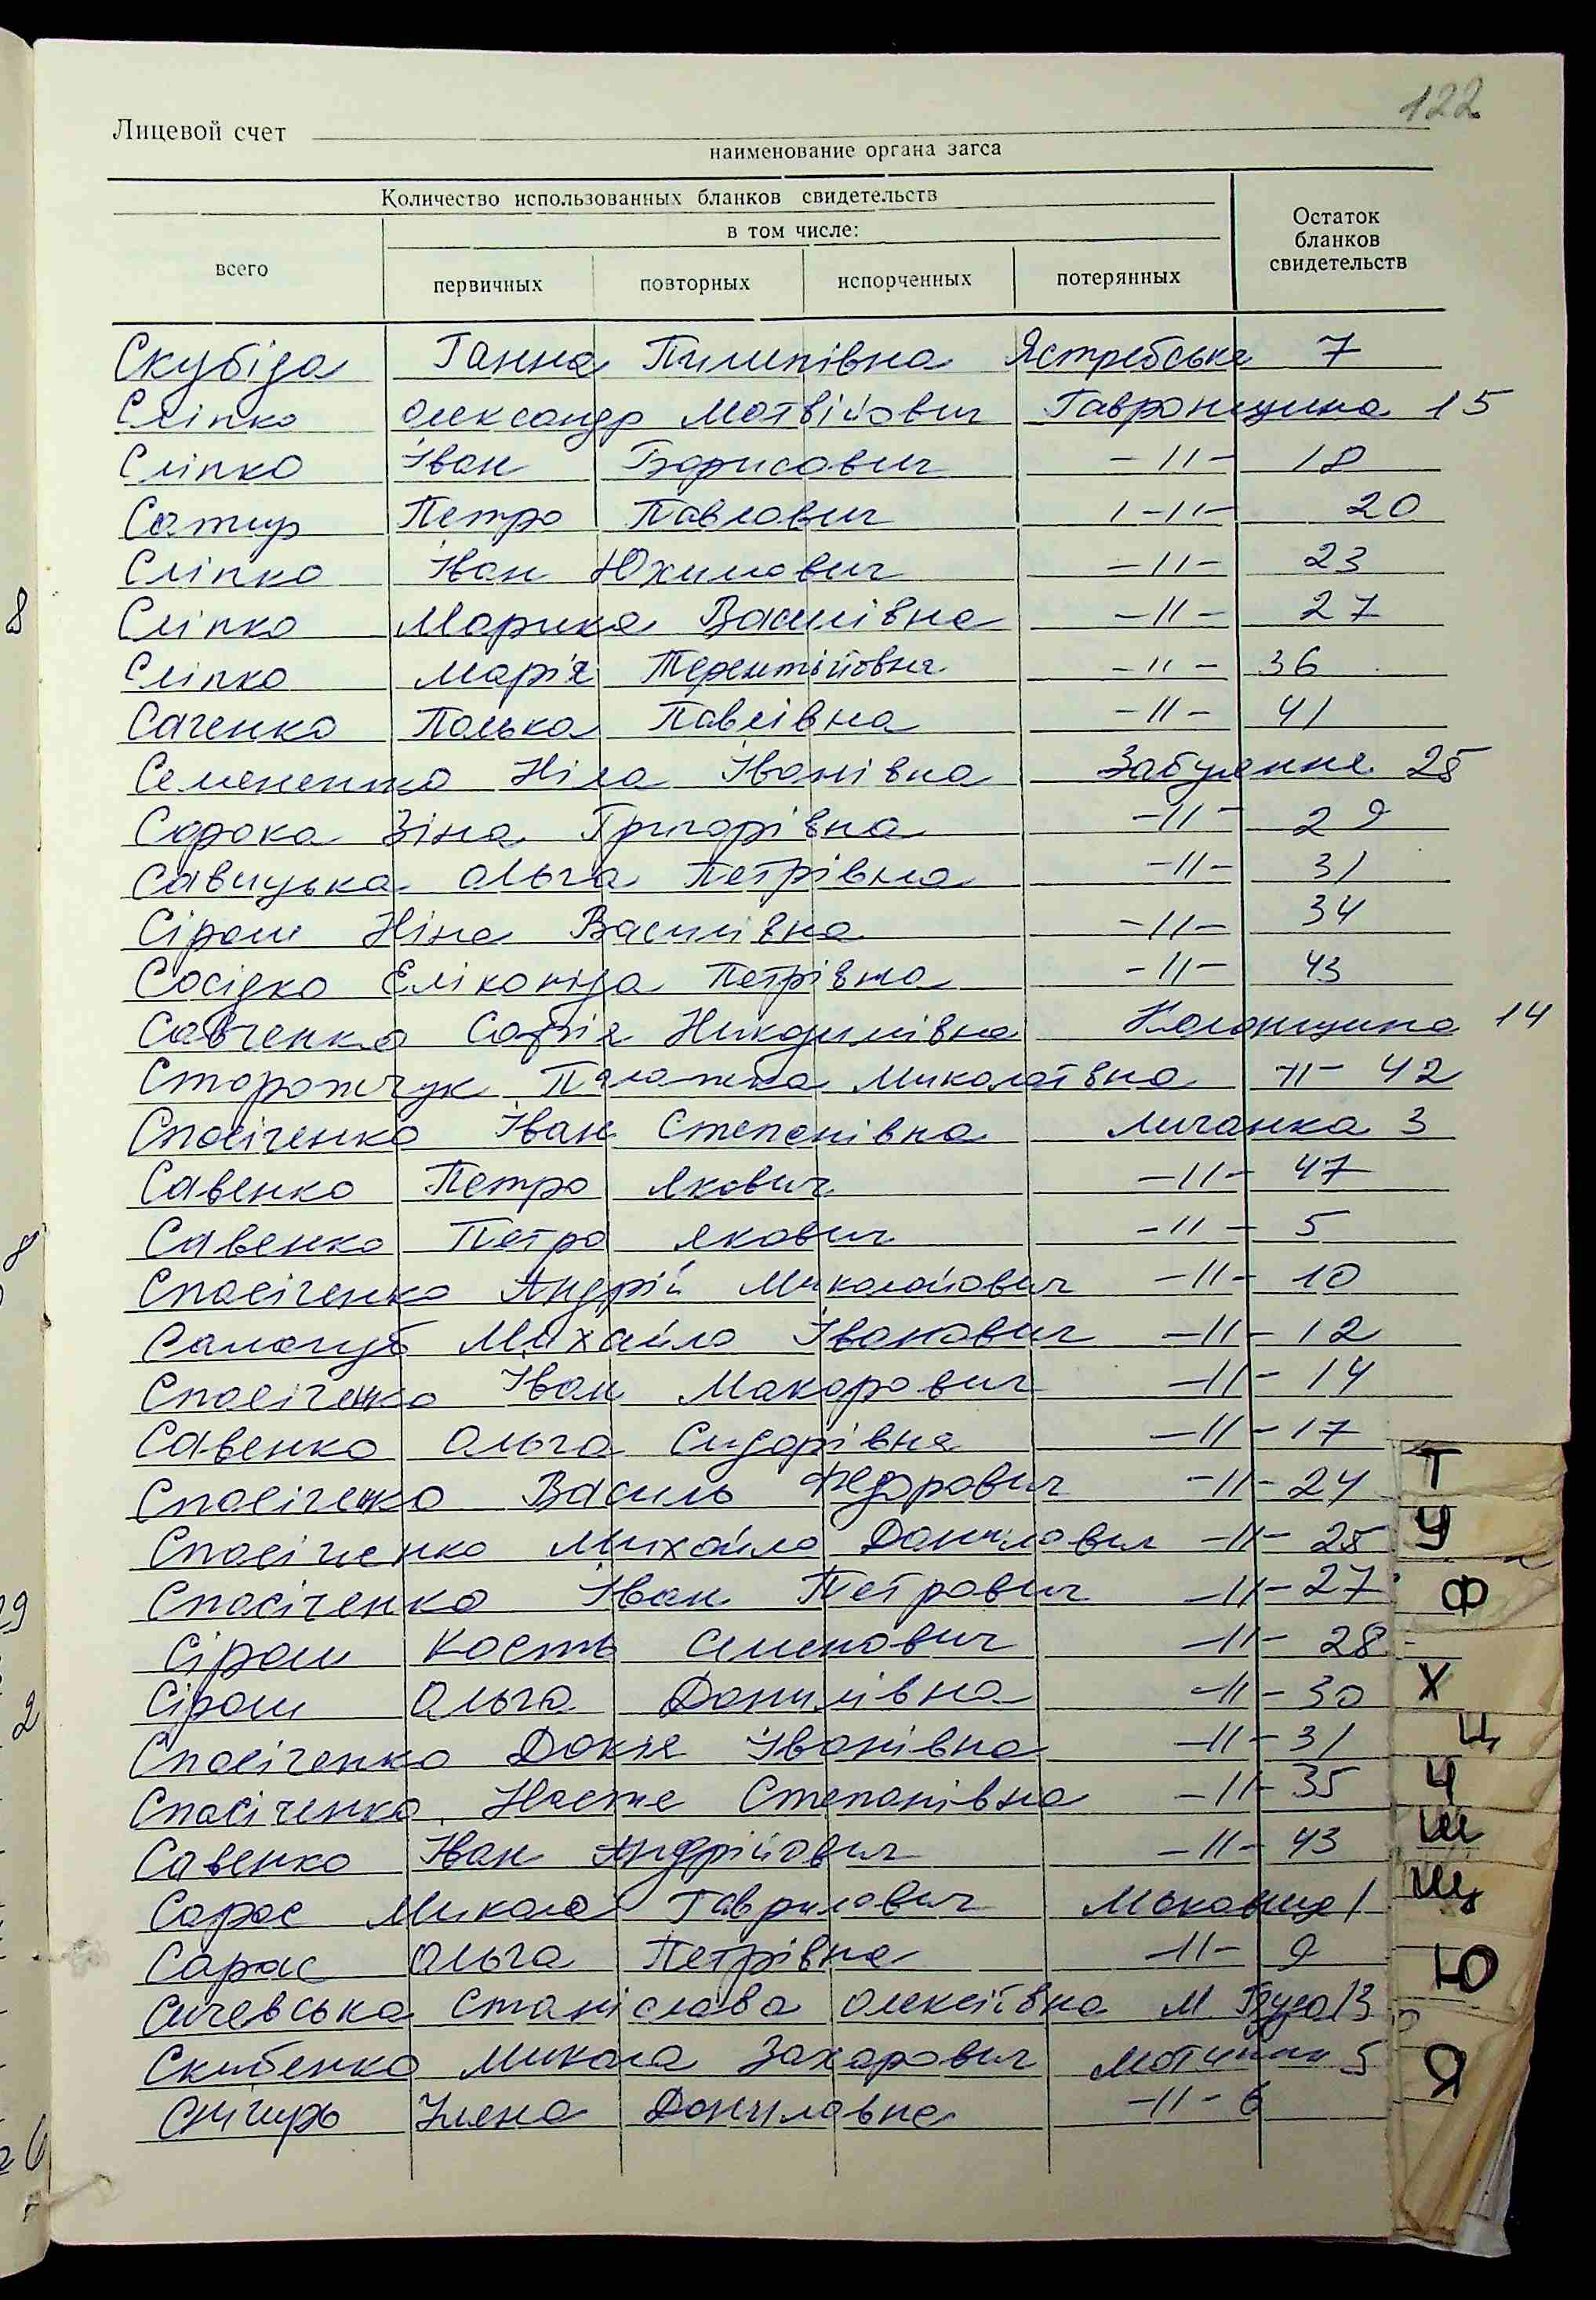 122
Лицевой счет
наименование органа загса
Количество использованных бланков свидетельств
в том числе:
всего первичных повторных испорченных потерянных Остаток бланков свидетельств
Скубіда Ганна Пилипівна Ястребська 7
Сліпко Олександр Мотвійович Гавронщина 15
Сліпко Іван Борисович -11- 18
Сатир Петро Павлович -11- 20
Сліпко Іван Юхимович -11- 23
Сліпко Марика Василівна -11- 27
Сліпко Марія Терентійовна -11- 36
Саченко Палька Павлівна -11- 41
Семененко Ніла Іванівна Забуяння 25
Сорока Зіна Григорівна -11- 29
Савицька Ольга Петрівна -11- 31
Сірош Ніна Василівна -11- 34
Сосідко Еліконіда Петрівна -11- 43
Савченко Софія Никодимівна Колонщина 14
Сторожчук Палажка Миколаївна -11- 42
Спасіченко Іван Степанівна Личанка 3
Савенко Петро Якович -11- 47
Савенко Петро Якович -11- 5
Спасіченко Андрій Миколайович -11- 10
Салогуб Михайло Іванович -11- 12
Спасіченко Іван Макарович -11- 14
Савенко Ольга Сидорівна -11- 17
Спасіченко Василь Федорович -11- 24
Спасіченко Михайло Данилович -11- 25
Спасіченко Іван Петрович -11- 27
Сірош Кость Семенович -11- 28
Сірош Ольга Данилівна -11- 30
Спасіченко Докія Іванівна -11- 31
Спасіченко Настя Степанівна -11- 35
Савенко Іван Андрійович -11- 43
Сарас Микола Гаврилович Маковище 1
Сарас Ольга Петрівна -11- 9
Сичевська Станіслава Олексіївна М. Буда 13
Скибенко Микола Захарович Мотижин 5
Снігирь Уляна Даниловна -11- 6
Т
У
Ф
Х
Ц
Ч
Ш
Щ
Ю
Я